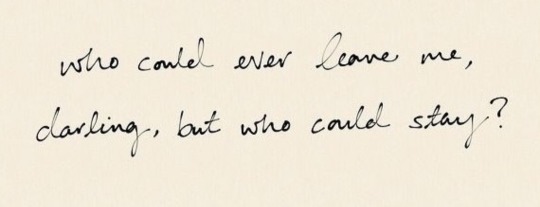 who could ever leave me,
darling, but who could stay?